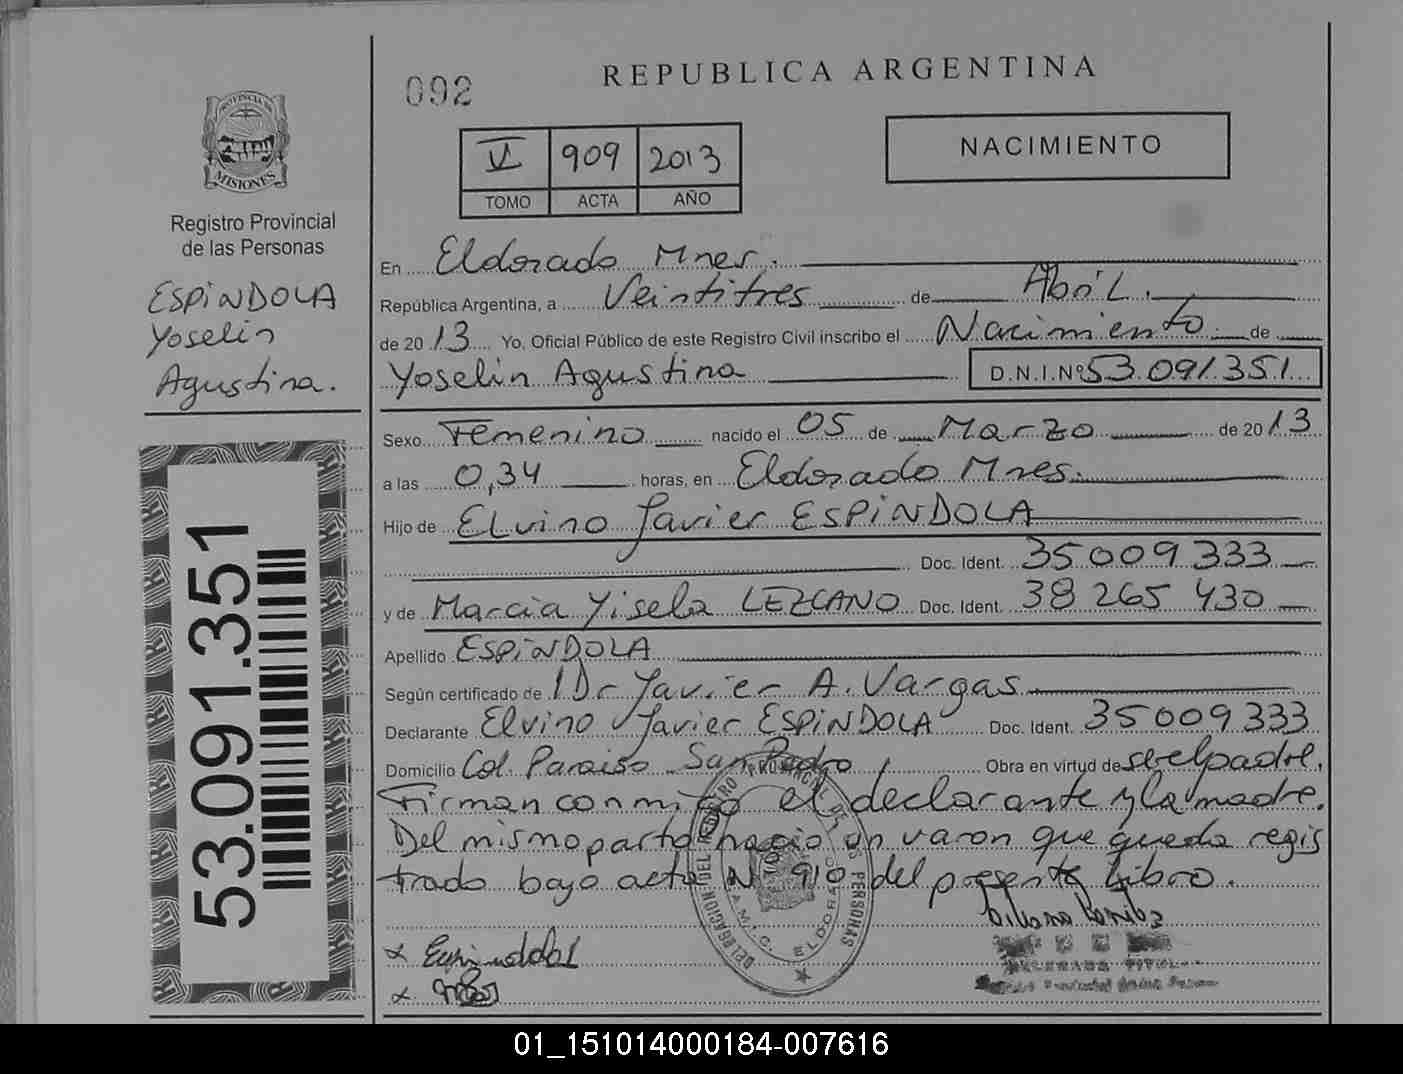 092
REPUBLICA ARGENTINA
NACIMIENTO
V 909 2013
TOMO ACTA AÑO
PROVINCIA DE
MISIONES
Registro Provincial
de las Personas
ESPINDOLA
Yoselin
Agustina.
53.091.351
En Eldorado Mnes.
República Argentina, a Veintitres de Abril.
de 2013 Yo, Oficial Público de este Registro Civil inscribo el Nacimiento de
Yoselin Agustina D.N.I.Nº 53.091.351
Sexo Femenino nacido el 05 de Marzo de 2013
a las 0,34 horas, en Eldorado Mnes.
Hijo de Elvino Javier ESPINDOLA
Doc. Ident. 35 009 333
y de Marcia Yisela LEZCANO Doc. Ident. 38 265 430
Apellido ESPINDOLA
Según certificado de Dr Javier A. Vargas
Declarante Elvino Javier ESPINDOLA Doc. Ident. 35 009 333
Domicilio Col. Paraiso San Pedro Obra en virtud de ser el padre.
Firman conmigo el declarante y la madre.
Del mismo parto nacio un varon que queda regis
trado bajo acta Nº 910 del presente Libro.
DELEGACION DEL REGISTRO PROVINCIAL DE LAS PERSONAS
S.A.M.I.C. ELDORADO
01_151014000184-007616